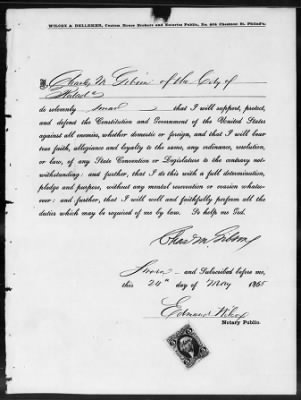 WILCOX & HELLEMER, Custom House Brokers and Notaries Public, No. 406 Chestnut St. Philad'a.
I, Charles M Gibson of the City of
Philad a
do solemnly swear that I will support, protect,
and defend the Constitution and Government of the United States
against all enemies, whether domestic or foreign, and that I will bear
true faith, allegiance and loyalty to the same, any ordinance, resolution,
or law, of any State Convention or Legislature to the contrary not-
withstanding: and further, that I do this with a full determination,
pledge and purpose, without any mental reservation or evasion whatso-
ever: and further, that I will well and faithfully perform all the
duties which may be required of me by law. So help me God.
Chas M Gibson
Sworn and Subscribed before me,
this 24th day of May 1865
Edmund Wilcox
Notary Public.